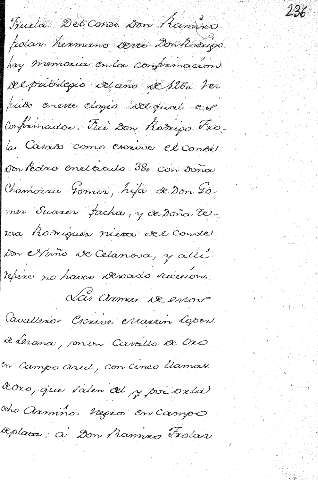 236
Fruela. Del Conde Don Ramiro
frolaz hermano deste Don Rodrigo
hay memoria en la confirmacion
del privilegio del año de 1126 re-
en este elogio del qual es
confirmador. Fue Don Rodrigo Fro-
laz Casado como escrive el Conde
Don Pedro en el titulo 38 con doña
Chamorra Gomez, hija de Don Go-
mez Suarez facha, y de Doña Te-
resa Rodriguez nieta del Conde
Don Muño de Celanova, y alli
refiere no haver dexado sucesion.
Las Armas de estos
Cavalleros Escrive Martin Lopez
de Lezana, son un Castillo de Oro
en campo azul, con cinco llamas
de oro, que salen del y por orla
ocho Armiños negros en Campo
de plata: a Don Ramiro Frolaz